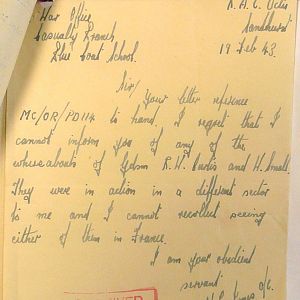 War Office
R.A.C. Octu
Casualty Branch
Sandhurst
Blue Coat School.
19 Feb 43.
Sir/ Your letter reference
MC/OR/PD114 to hand. I regret that I
cannot inform you of any of the
whereabouts of Gdsmn R.W. Curtis and H. Small.
They were in action in a different sector
to me and I cannot recollect seeing
either of them in France.
I am your obedient
servant